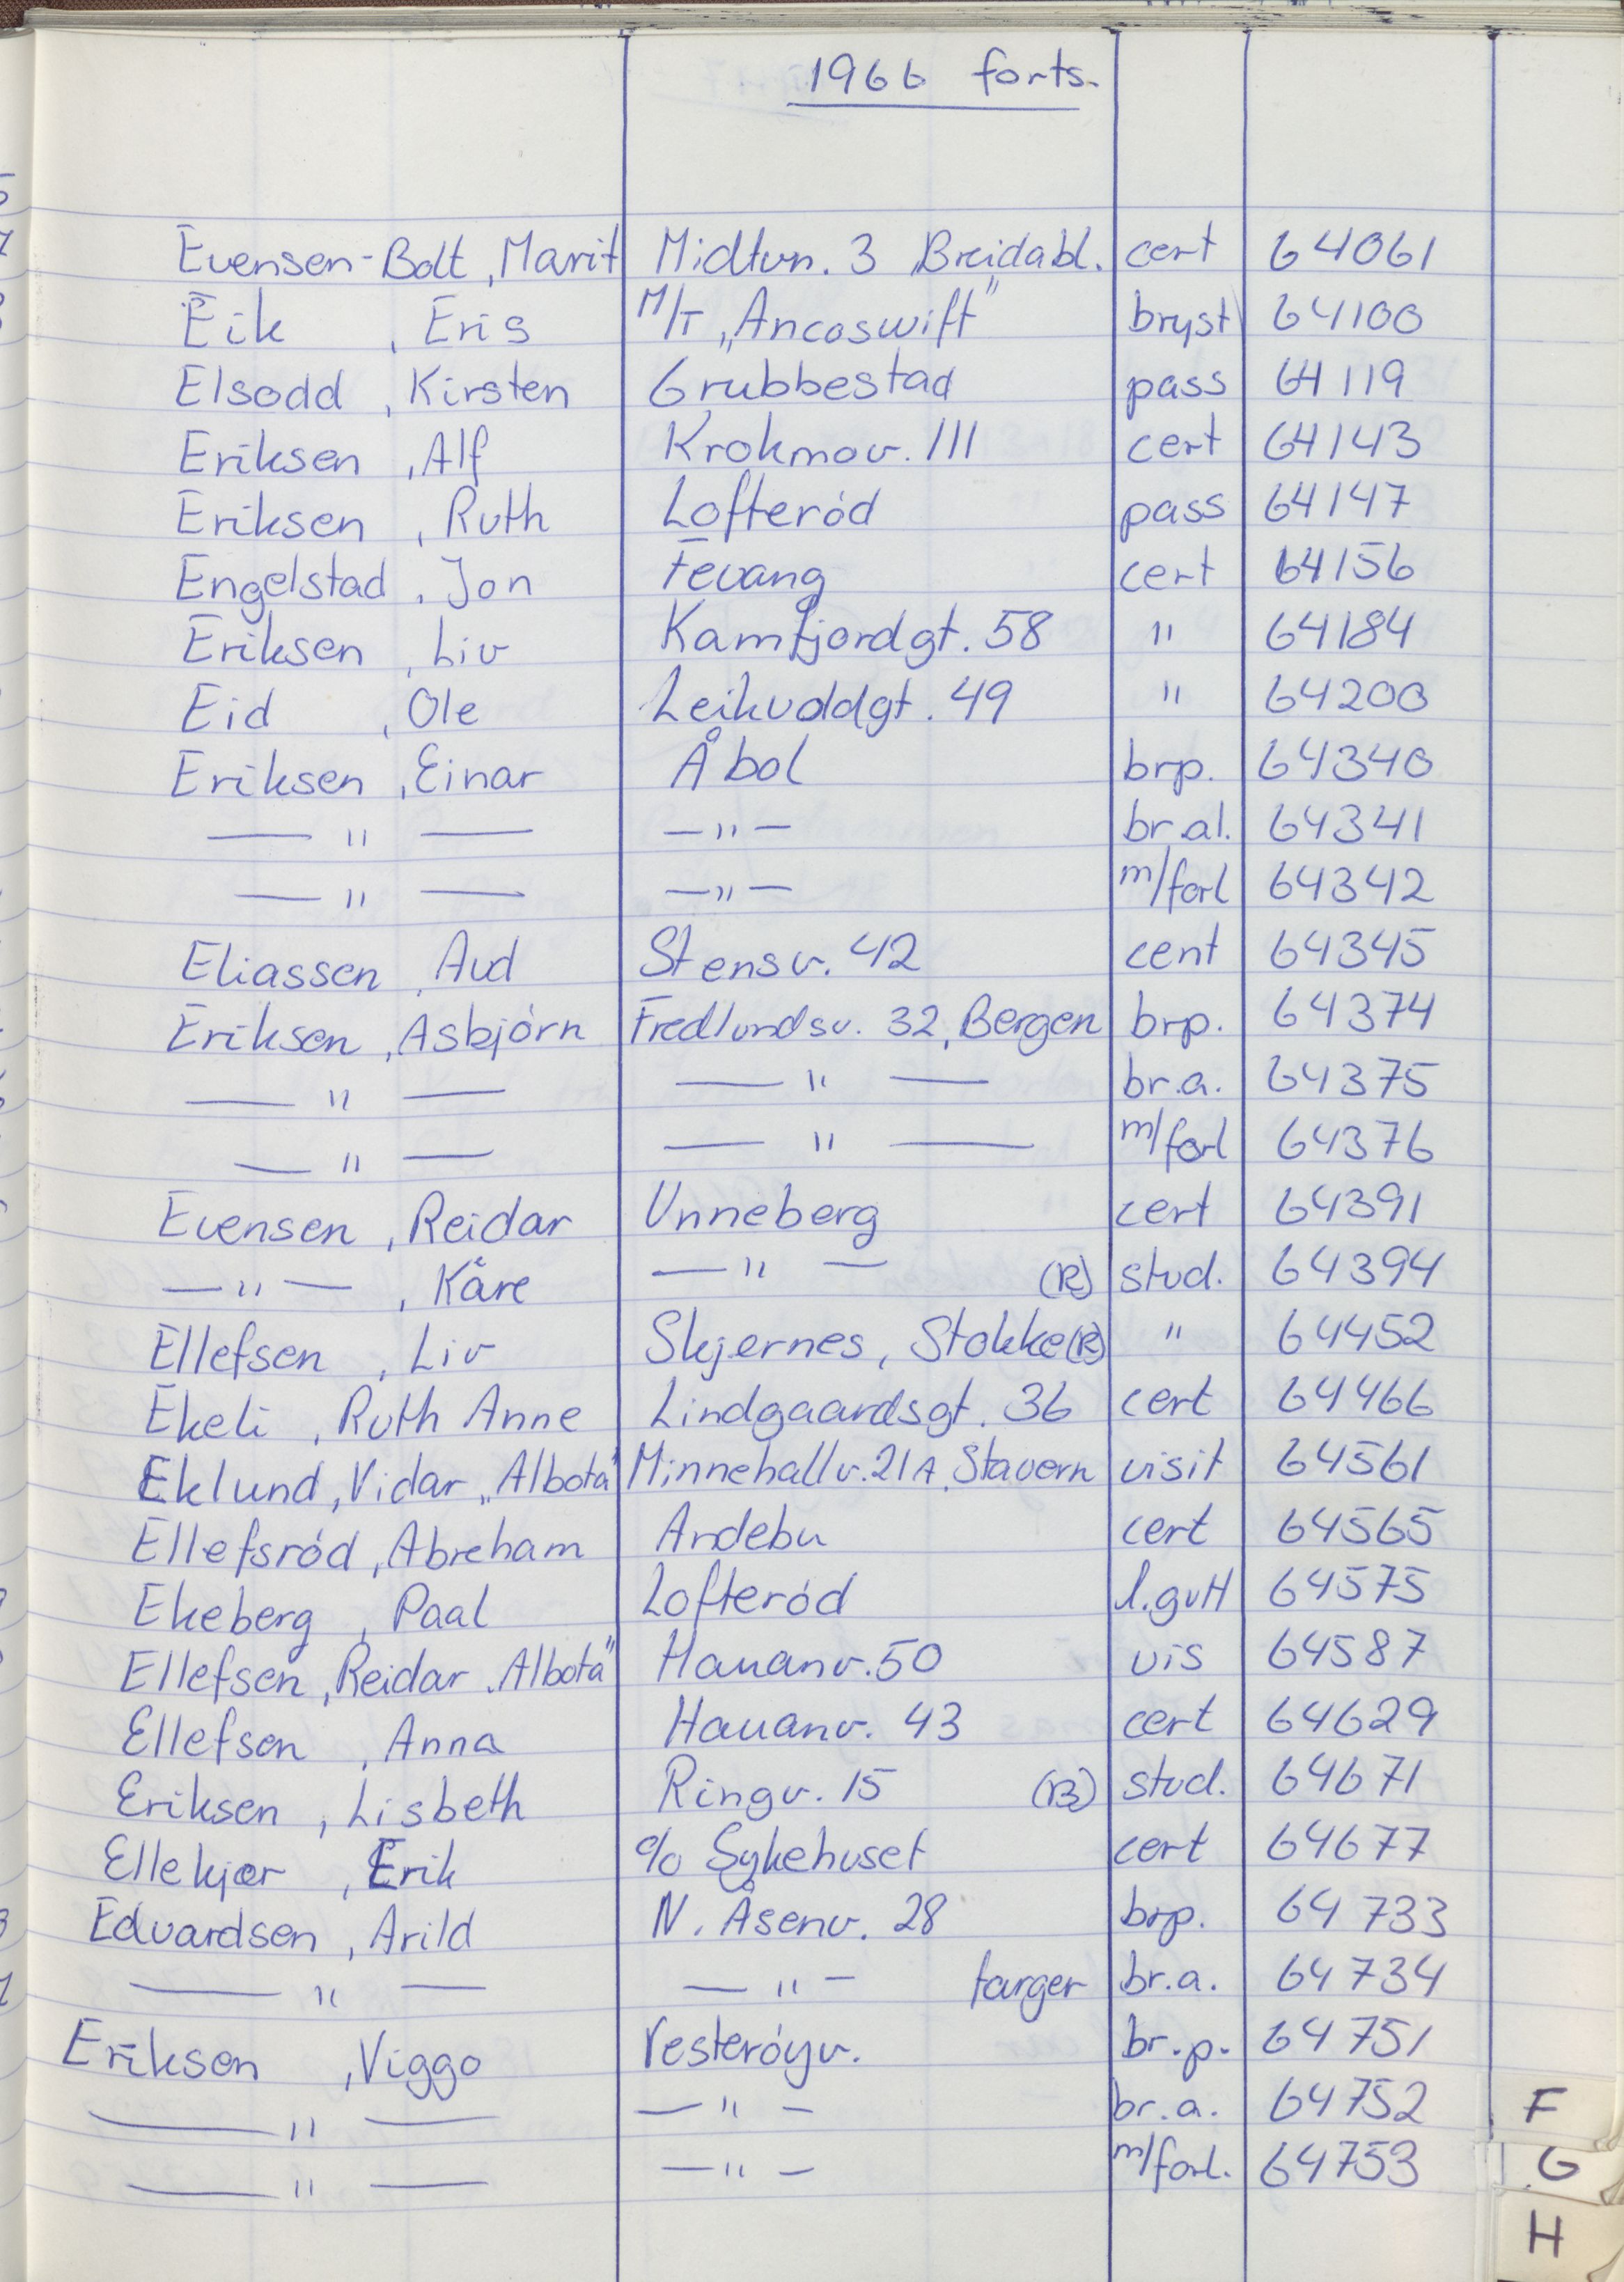 1966 forts.
Evensen-Bolt, Marit Midtvn. 3 Breidabl. cert 64061
Eik , Eris M/T „Ancoswift" bryst 64100
Elsodd , Kirsten Grubbestad pass 64119
Eriksen , Alf Krokmov. 111 cert 64143
Eriksen , Ruth Lofteród pass 64147
Engelstad , Jon Fevang cert 64156
Eriksen , Liv Kamfjordgt. 58 " 64184
Eid , Ole Leikvoldgt. 49 " 64200
Eriksen , Einar Åbol brp. 64340
— " — — " — br.al. 64341
— " — — " — m/forl 64342
Eliassen , Aud Stensv. 42 cent 64345
Eriksen , Asbjórn Fredlundsv. 32, Bergen brp. 64374
— " — — " — br.a. 64375
— " — — " — m/forl 64376
Evensen , Reidar Unneberg cert 64391
— " — , Kåre — " — (R) stud. 64394
Ellefsen , Liv Skjernes, Stokke (R) " 64452
Ekeli , Ruth Anne Lindgaardsgt. 36 cert 64466
Eklund, Vidar „Albota" Minnehallv. 21A, Stavern visit 64561
Ellefsród , Abreham Andebu cert 64565
Ekeberg , Paal Lofteród l.gutt 64575
Ellefsen, Reidar „Albota" Hauanv. 50 vis 64587
Ellefsen , Anna Hauanv. 43 cert 64629
Eriksen , Lisbeth Ringv. 15 (B) stud. 64671
Ellekjær , Erik c/o Sykehuset cert 64677
Edvardsen , Arild N. Åsenv. 28 brp. 64733
— " — — " — farger br.a. 64734
Eriksen , Viggo Vesteróyv. br.p. 64751
— " — — " — br.a. 64752
— " — — " — m/forl. 64753
F
G
H